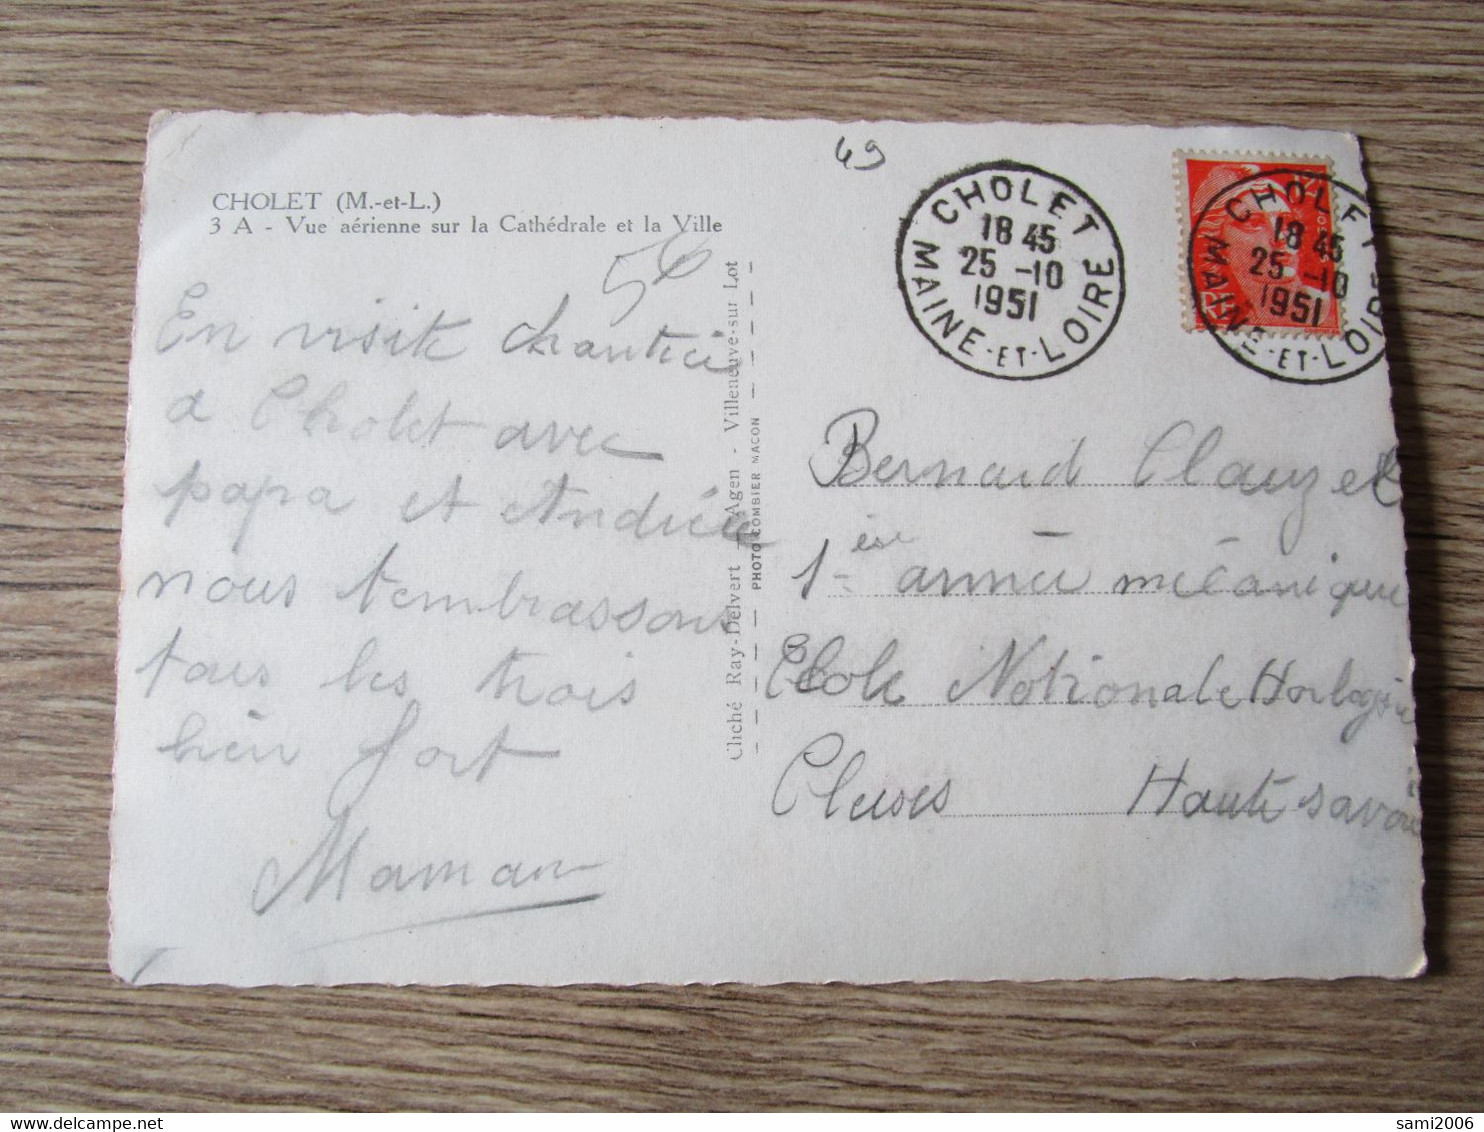 CHOLET (M.-et-L.)
3 A - Vue aérienne sur la Cathédrale et la Ville
56
En visite chantier
a Cholet avec
papa et Andrée
nous t'embrassons
tous les trois
bien fort
Maman
Cliché Ray-Delvert - Agen - Villeneuve-sur Lot
PHOTO COMBIER MACON
49
CHOLET
18 45
25 -10
1951
MAINE-ET-LOIRE
CHOLET
18 45
25 -10
1951
MAINE-ET-LOIRE
Bernard Clauzet
1ère année mécanique
Ecole Nationale Horlogerie
Cluses Haute savoie
sami2006